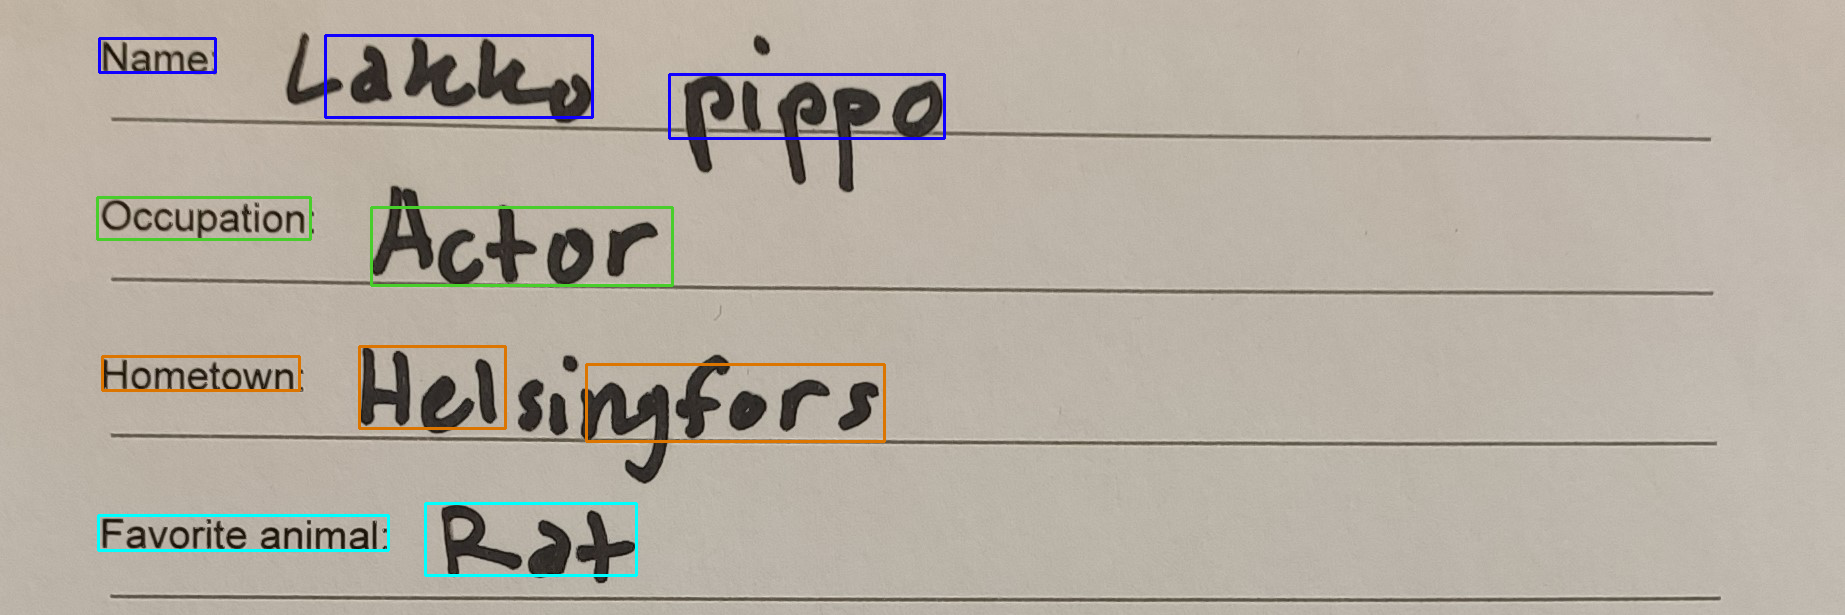 Name: Lakko pippo
Occupation: Actor
Hometown: Helsingfors
Favorite animal: Rat